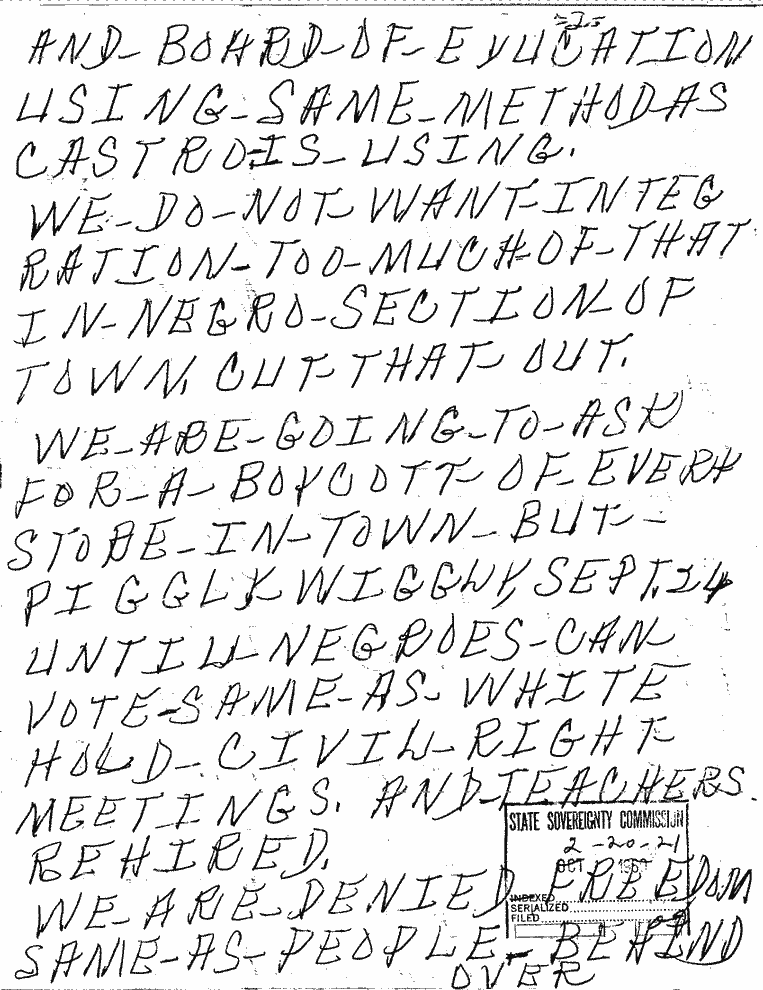 =2=
AND-BOARD-OF-EDUCATION
USING-SAME-METHOD-AS
CASTRO-IS-USING.
WE-DO-NOT-WANT-INTEG
RATION-TOO-MUCH-OF-THAT
IN-NEGRO-SECTION-OF
TOWN, CUT-THAT-OUT.
WE-ARE-GOING-TO-ASK
FOR-A-BOYCOTT-OF-EVERY
STORE-IN-TOWN-BUT-
PIGGLY-WIGGLY, SEPT. 24
UNTILL-NEGROES-CAN
VOTE-SAME-AS-WHITE
HOLD-CIVIL-RIGHT-
MEETINGS. AND-TEACHERS.
REHIRED.
STATE SOVEREIGNTY COMMISSION
2-20-21
OCT
INDEXED
SERIALIZED
FILED
WE-ARE-DENIED FREEDOM
SAME-AS-PEOPLE-BEHIND
OVER